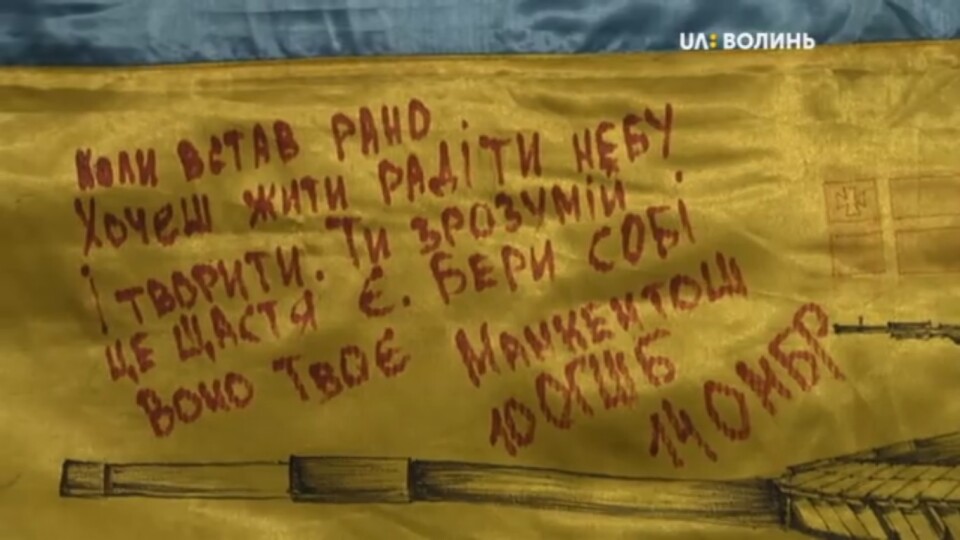 UA: ВОЛИНЬ
КОЛИ ВСТАВ РАНО
ХОЧЕШ ЖИТИ РАДІТИ НЕБУ
І ТВОРИТИ. ТИ ЗРОЗУМІЙ.
ЦЕ ЩАСТЯ Є. БЕРИ СОБІ
ВОНО ТВОЄ МАНКЕНТОШ
10 ОГШБ
14 ОМБР